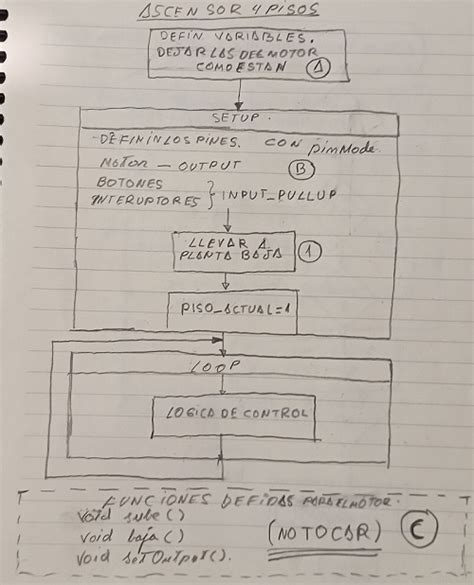 ASCENSOR 4 PISOS
DEFIN VARIABLES.
DEJAR LAS DEL MOTOR
COMO ESTAN A
SETUP.
DEFININ LOS PINES. CON pinMode.
MOTOR — OUTPUT B
BOTONES
INTERUPTORES } INPUT_PULLUP
LLEVAR A
PLANTA BAJA 1
PISO_ACTUAL=1
LOOP
LOGICA DE CONTROL
FUNCIONES DEFIDAS PARA EL MOTOR.
void sube()
void baja() (NO TOCAR) C
void setOutput().